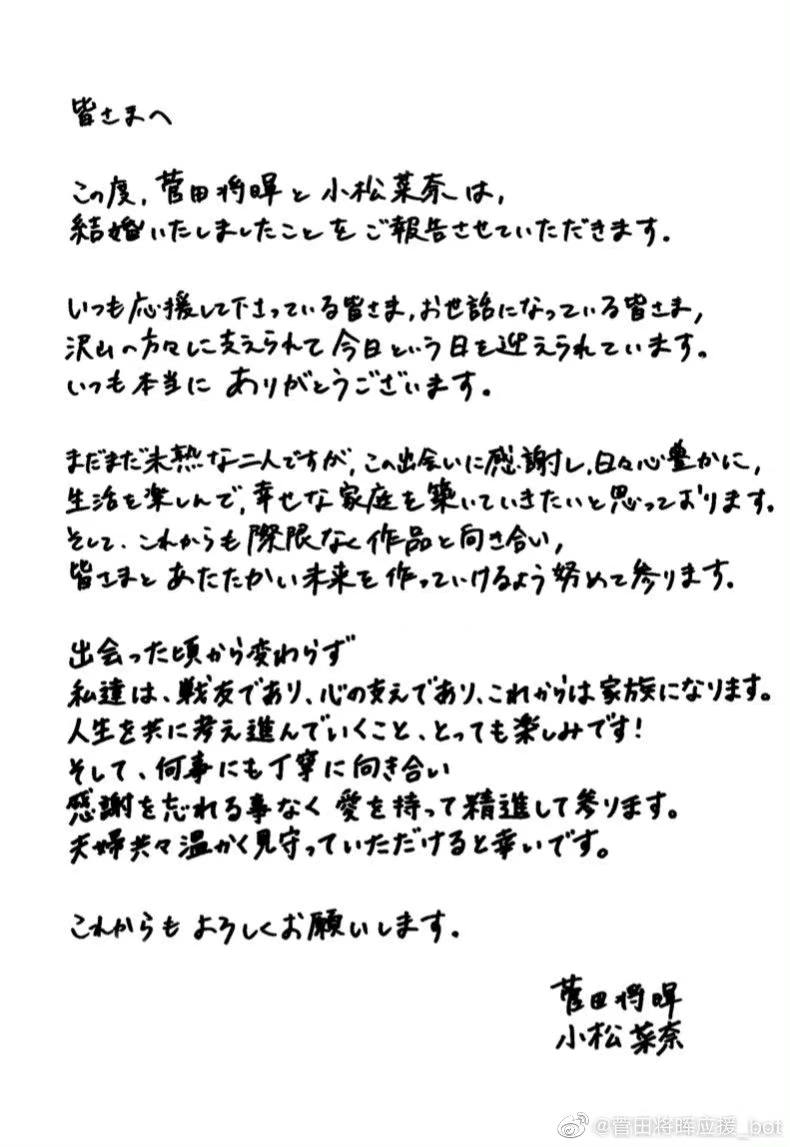 皆さまへ
この度、菅田将暉と小松菜奈は、
結婚いたしましたことをご報告させていただきます。
いつも応援して下さっている皆さま、お世話になっている皆さま、
沢山の方々に支えられて今日という日を迎えられています。
いつも本当にありがとうございます。
まだまだ未熟な二人ですが、この出会いに感謝し、日々心豊かに、
生活を楽しんで、幸せな家庭を築いていきたいと思っております。
そして、これからも際限なく作品と向き合い、
皆さまとあたたかい未来を作っていけるよう努めて参ります。
出会った頃から変わらず
私達は、戦友であり、心の支えであり、これからは家族になります。
人生を共に考え進んでいくこと、とっても楽しみです！
そして、何事にも丁寧に向き合い
感謝を忘れる事なく愛を持って精進して参ります。
夫婦共々温かく見守っていただけると幸いです。
これからもよろしくお願いします。
菅田将暉
小松菜奈
@菅田将晖应援_bot